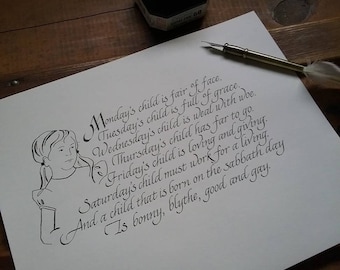 Monday's child is fair of face,
Tuesday's child is full of grace
Wednesday's child is weal with woe,
Thursday's child has far to go.
Friday's child is loving and giving.
Saturday's child must work for a living.
And a child that is born on the sabbath day
Is bonny, blythe, good and gay.